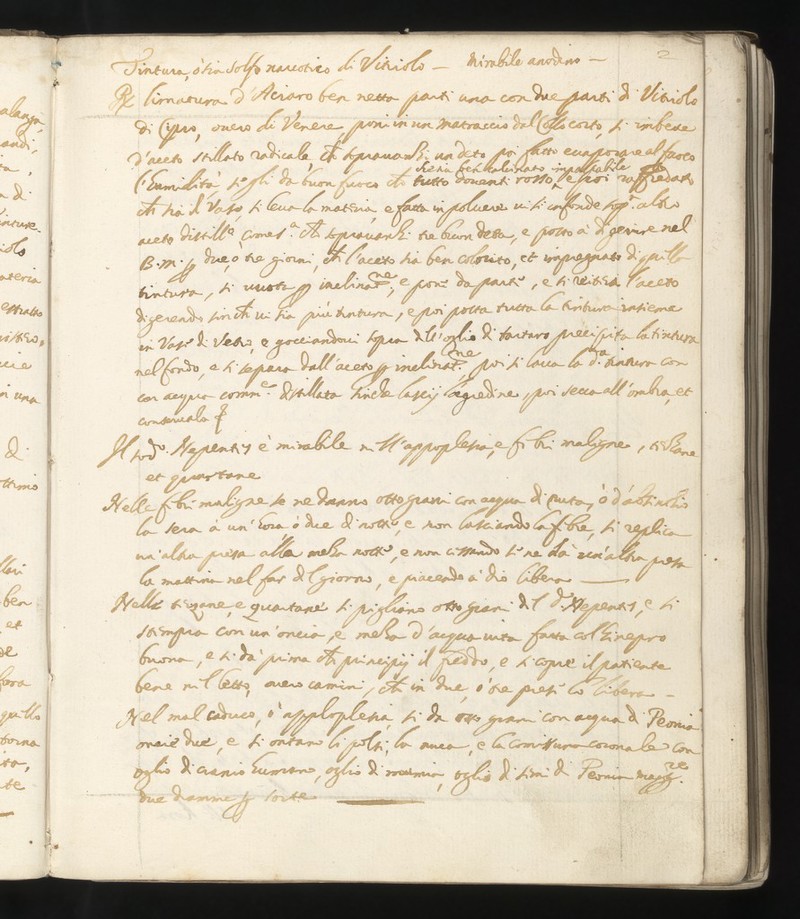 2
Tintura, ò sia Solfo narcotico di Vitriolo — Mirabile anodino —
℞ limatura d'Acciaro ben netta parti una con due parti di Vitriolo
di Cipro, overo di Venere, poni in un matraccio dal Collo corto, si imbeve
d'aceto stillato radicale che sopravanzi un deto poi fatto evaporare al fuoco
l'humidità se gli da buon fuoco che tutto doventi rosso, e poi raffredato
e sia ben calcinato impalpabile
che sia il Vaso si leva la materia, e fatta in polvere vi si confonde sopra altro
aceto distillo come sa. che sopravanzi tre buon deta, e posto à digerire nel
B. m. per due, o tre giorni, che l'aceto sia ben colorito, et impregnato di quella
tintura, si vuota per inclinatne, e poni da parte, e si reitera l'aceto
digerendo sinche vi sia più tintura, e poi posta tutta la tintura insieme
in Vaso di Vetro, e gocciandovi sopra dell'oglio di tartaro precipita la tintura
nel fondo, e si separa dall'aceto per inclinatne, poi si lava la da tintura con
con acqua comme. distillata sinche lascij l'agredine, poi secca all'ombra, et
conservala
Il sodo. Nepentis è mirabile nell'appoplesia, e febri maligne, terzane
et quartane
Nelle febri maligne se ne danno otto grani con acqua di ruta, ò d'absinthio
la sera à un'hora ò due di notte, e non lasciando la febre, si replica
un'altra presa alla meza notte, e non cessando se ne da un'altra presa
la mattina nel far del giorno, e piacendo à dio libera —
Nelle terzane, e quartane si pigliano otto grani del do Nepentis, e si
stempra con un'oncia, e meza d'acqua vita fatta col Ginepro
buona, e si da prima che principij il freddo, e si copre il patiente
bene nel letto, overo camini, che in due, ò tre prese lo libera —
Nel mal caduco, ò apploplesia, si da otto grani con acqua di Peonia
oncie due, e si ontano li polsi, la nuca, e la comissura coronale con
oglio di cranio humano, oglio di mumia, oglio di semi di Peonia magre.
due dramme per sorte